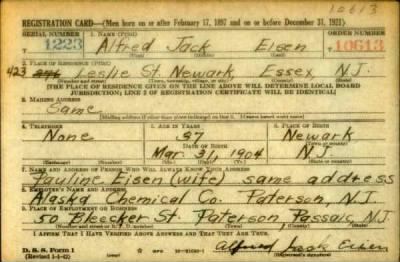 10613
REGISTRATION CARD—(Men born on or after February 17, 1897 and on or before December 31, 1921)
SERIAL NUMBER 1. NAME (Print) ORDER NUMBER
T 1223 Alfred Jack Eisen 10613
(First) (Middle) (Last)
2. PLACE OF RESIDENCE (Print)
423 Leslie St. Newark, Essex, N.J.
(Number and street) (Town, township, village, or city) (County) (State)
[THE PLACE OF RESIDENCE GIVEN ON THE LINE ABOVE WILL DETERMINE LOCAL BOARD
JURISDICTION; LINE 2 OF REGISTRATION CERTIFICATE WILL BE IDENTICAL]
3. MAILING ADDRESS
Same
[Mailing address if other than place indicated on line 2. If same insert word same]
4. TELEPHONE 5. AGE IN YEARS 6. PLACE OF BIRTH
None 37 Newark
DATE OF BIRTH (Town or county)
Mar. 31, 1904 N.J.
(Exchange) (Number) (Mo.) (Day) (Yr.) (State or country)
7. NAME AND ADDRESS OF PERSON WHO WILL ALWAYS KNOW YOUR ADDRESS
Pauline Eisen (wife) same address
8. EMPLOYER'S NAME AND ADDRESS
Alaska Chemical Co. Paterson, N.J.
9. PLACE OF EMPLOYMENT OR BUSINESS
50 Bleecker St. Paterson Passaic, N.J.
(Number and street or R. F. D. number) (Town) (County) (State)
I AFFIRM THAT I HAVE VERIFIED ABOVE ANSWERS AND THAT THEY ARE TRUE.
D. S. S. Form 1 Alfred Jack Eisen
(Registrant's signature)